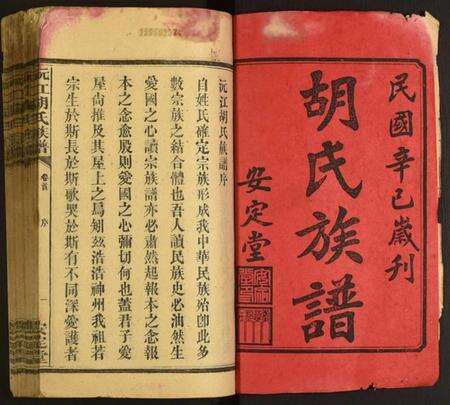 民國辛巳歲刊
胡氏族譜
安定堂
沅江胡氏族譜序
自姓氏確定宗族形成我中華民族殆卽此多
數宗族之結合體也吾人讀民族史必油然生
愛國之心讀宗族譜亦必肅然起報本之念報
本之念愈殷則愛國之心彌切何也蓋君子愛
屋尙推及其屋上之烏矧茲浩浩神州我祖若
宗生於斯長於斯歌哭於斯有不同深愛護者
沅江胡氏族譜
卷首
序
一